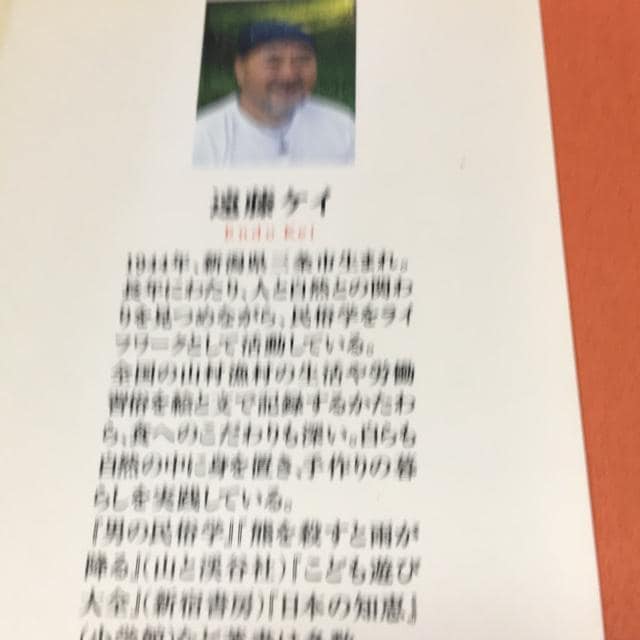 遠藤ケイ
Endo Kei
1944年、新潟県三条市生まれ。
長年にわたり、人と自然との関わ
りを見つめながら、民俗学をライ
フワークとして活動している。
全国の山村漁村の生活や労働
習俗を絵と文で記録するかたわ
ら、食へのこだわりも深い。自らも
自然の中に身を置き、手作りの暮
らしを実践している。
『男の民俗学』『熊を殺すと雨が
降る』(山と渓谷社)『こども遊び
大全』(新宿書房)『日本の知恵』
(小学館)など著書は多数。